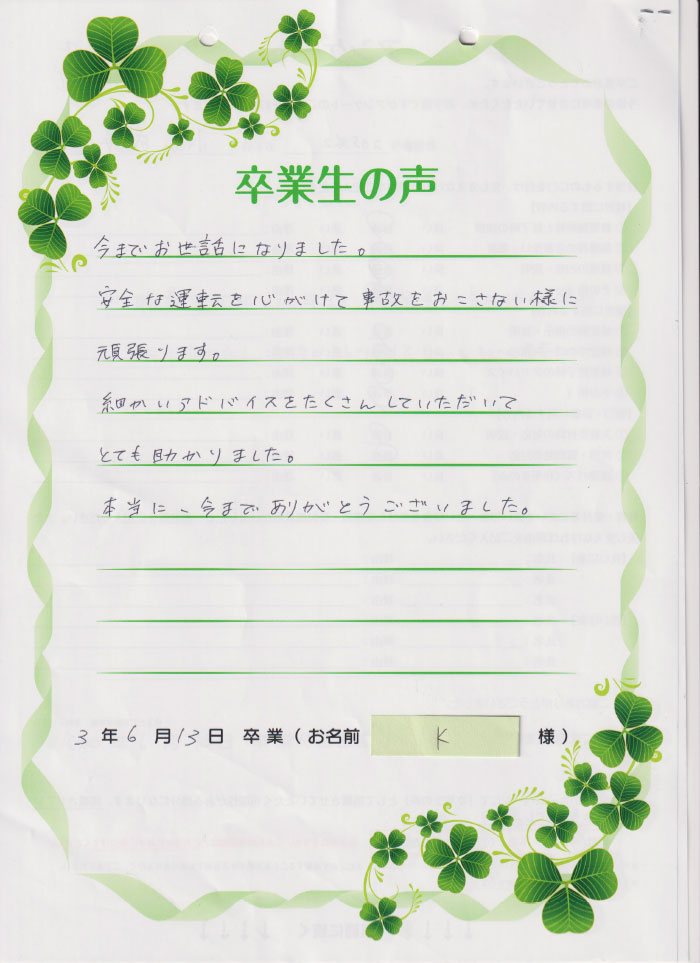 卒業生の声
今までお世話になりました。
安全な運転を心がけて事故をおこさない様に
頑張ります。
細かいアドバイスをたくさんしていただいて
とても助かりました。
本当に、今までありがとうございました。
3年6月13日 卒業(お名前 K 様)